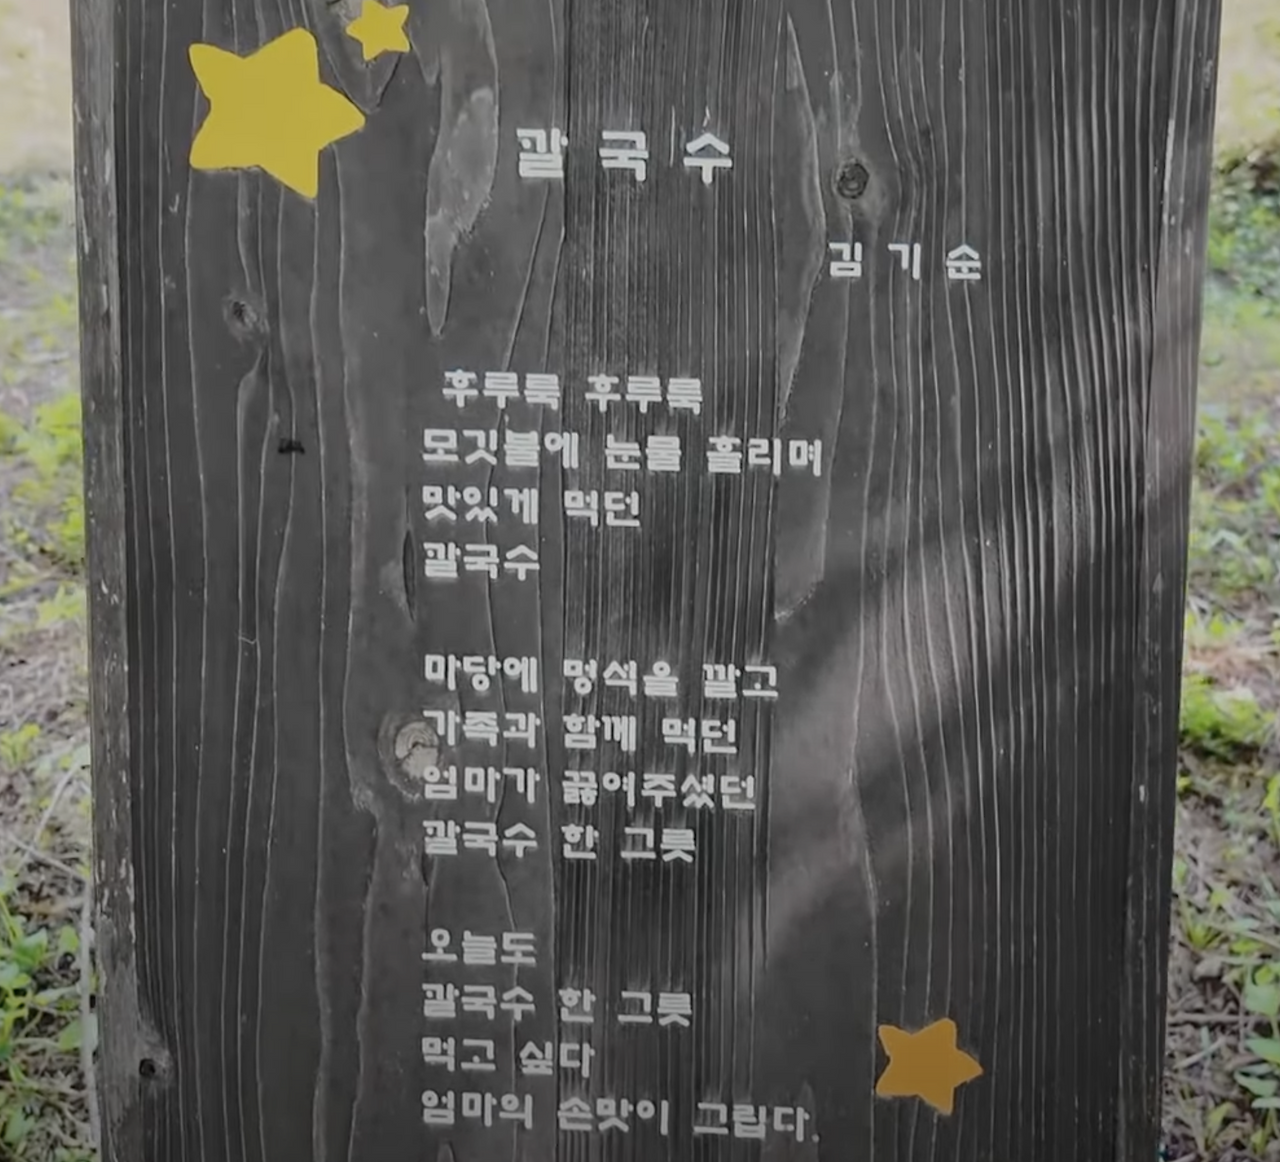 칼국수
김기순
후루룩 후루룩
모깃불에 눈물 흘리며
맛있게 먹던
칼국수
마당에 멍석을 깔고
가족과 함께 먹던
엄마가 끓여주셨던
칼국수 한 그릇
오늘도
칼국수 한 그릇
먹고 싶다
엄마의 손맛이 그립다.